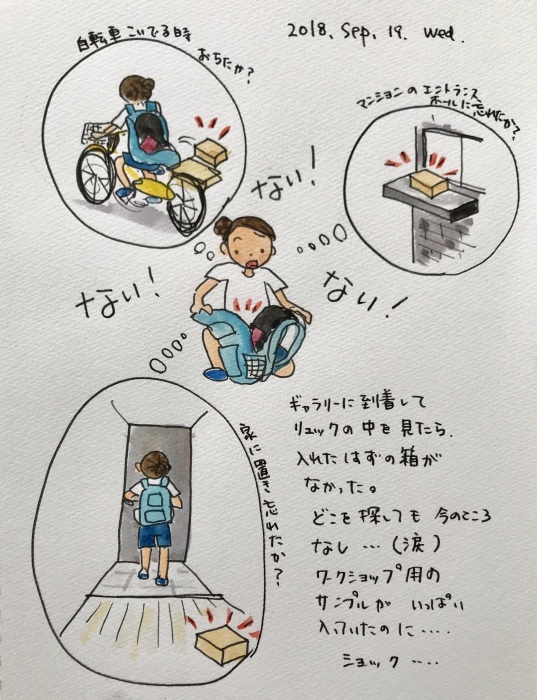 2018. Sep. 19. Wed.
自転車こいでる時
おちたか?
マンションのエントランス
ホールに忘れたか?
ない!
ない!
ない!
家に置き忘れたか?
ギャラリーに到着して
リュックの中を見たら、
入れたはずの箱が
なかった。
どこを探しても 今のところ
なし…(涙)
ワークショップ用の
サンプルが いっぱい
入っていたのに‥‥.
ショック‥‥